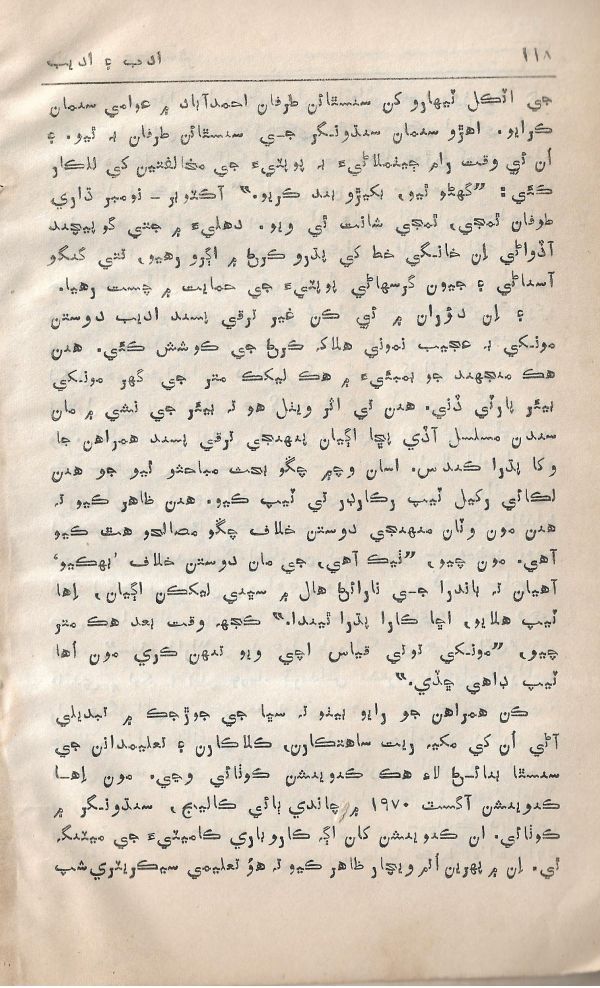 ١١٨
ادب ۽ اديب
جي اٽڪل ٽيهارو کن سنسٿائن طرفان احمدآباد ۾ عوامي سنمان
ڪرايو. اهڙو سنمان سنڌونگر جي سنسٿائن طرفان بہ ٿيو. ۽
اُن ئي وقت رام جيٺملاڻيءَ بہ پوپٽيءَ جي مخالفتين کي للڪار
ڪئي: ”گهڻو ٿيو، بکيڙو بند ڪريو.“ آڪٽوبر – نومبر ڌاري
طوفان ٿمجي، ٿمجي شانت ٿي ويو. دهليءَ ۾ جتي گوپيچند
آڏواڻي اِن خانگي خط کي پڌرو ڪرڻ ۾ اڳرو رهيو، تتي گنگو
آسناڻي ۽ جيون گرسهاڻي پوپٽيءَ جي حمايت ۾ چست رهيا.
۽ اِن دؤران ۾ ئي ڪن غير ترقي پسند اديب دوستن
مونکي بہ عجيب نموني هلاک ڪرڻ جي ڪوشش ڪئي. هنن
هڪ منجهند جو بمبئيءَ ۾ هڪ ليکڪ متر جي گهر مونکي
بيئر پارٽي ڏني. هنن تي اثر ويٺل هو تہ بيئر جي نشي ۾ مان
سندن مسلسل آڏي پڇا اڳيان پنهنجي ترقي پسند همراهن جا
وکا پڌرا ڪندس. اسان وچ۾ چڱو بحث مباحثو ٿيو جو هنن
لڪائي رکيل ٽيپ رڪارڊر تي ٽيپ ڪيو. هنن ظاهر ڪيو تہ
هنن مون وٽان منهنجي دوستن خلاف چڱو مصالحو هٿ ڪيو
آهي. مون چيو، ”ٺيڪ آهي، جي مان دوستن خلاف ’بهڪيو‘
آهيان تہ باندرا جي نارائڻ هال ۾ سڀني ليکڪن اڳيان، اِها
ٽيپ هلايو، اڇا ڪارا پڌرا ٿيندا.“ ڪجهہ وقت بعد هڪ متر
چيو، ”مونکي توتي قياس اچي ويو تنهن ڪري مون اُها
ٽيپ ڊاهي ڇڏي.“
ڪن همراهن جو رايو بيٺو تہ سڀا جي جوڙجڪ ۾ تبديلي
آڻي اُن کي مکيہ ريت ساهتڪارن، ڪلاڪارن ۽ تعليمدانن جي
سنسٿا بنائڻ لاءِ هڪ ڪنوينشن ڪوٺائي وڃي. مون اِها
ڪنوينشن آگسٽ ١٩٧٠ ۾ چاندي ٻائي ڪاليج، سنڌونگر ۾
ڪوٺائي. ان ڪنوينشن کان اڳہ ڪاروباري ڪاميٽيءَ جي ميٽنگہ
ٿي. اِن ۾ پهرين اُتم ويچار ظاهر ڪيو تہ هوُ تعليمي سيڪريٽري شپ